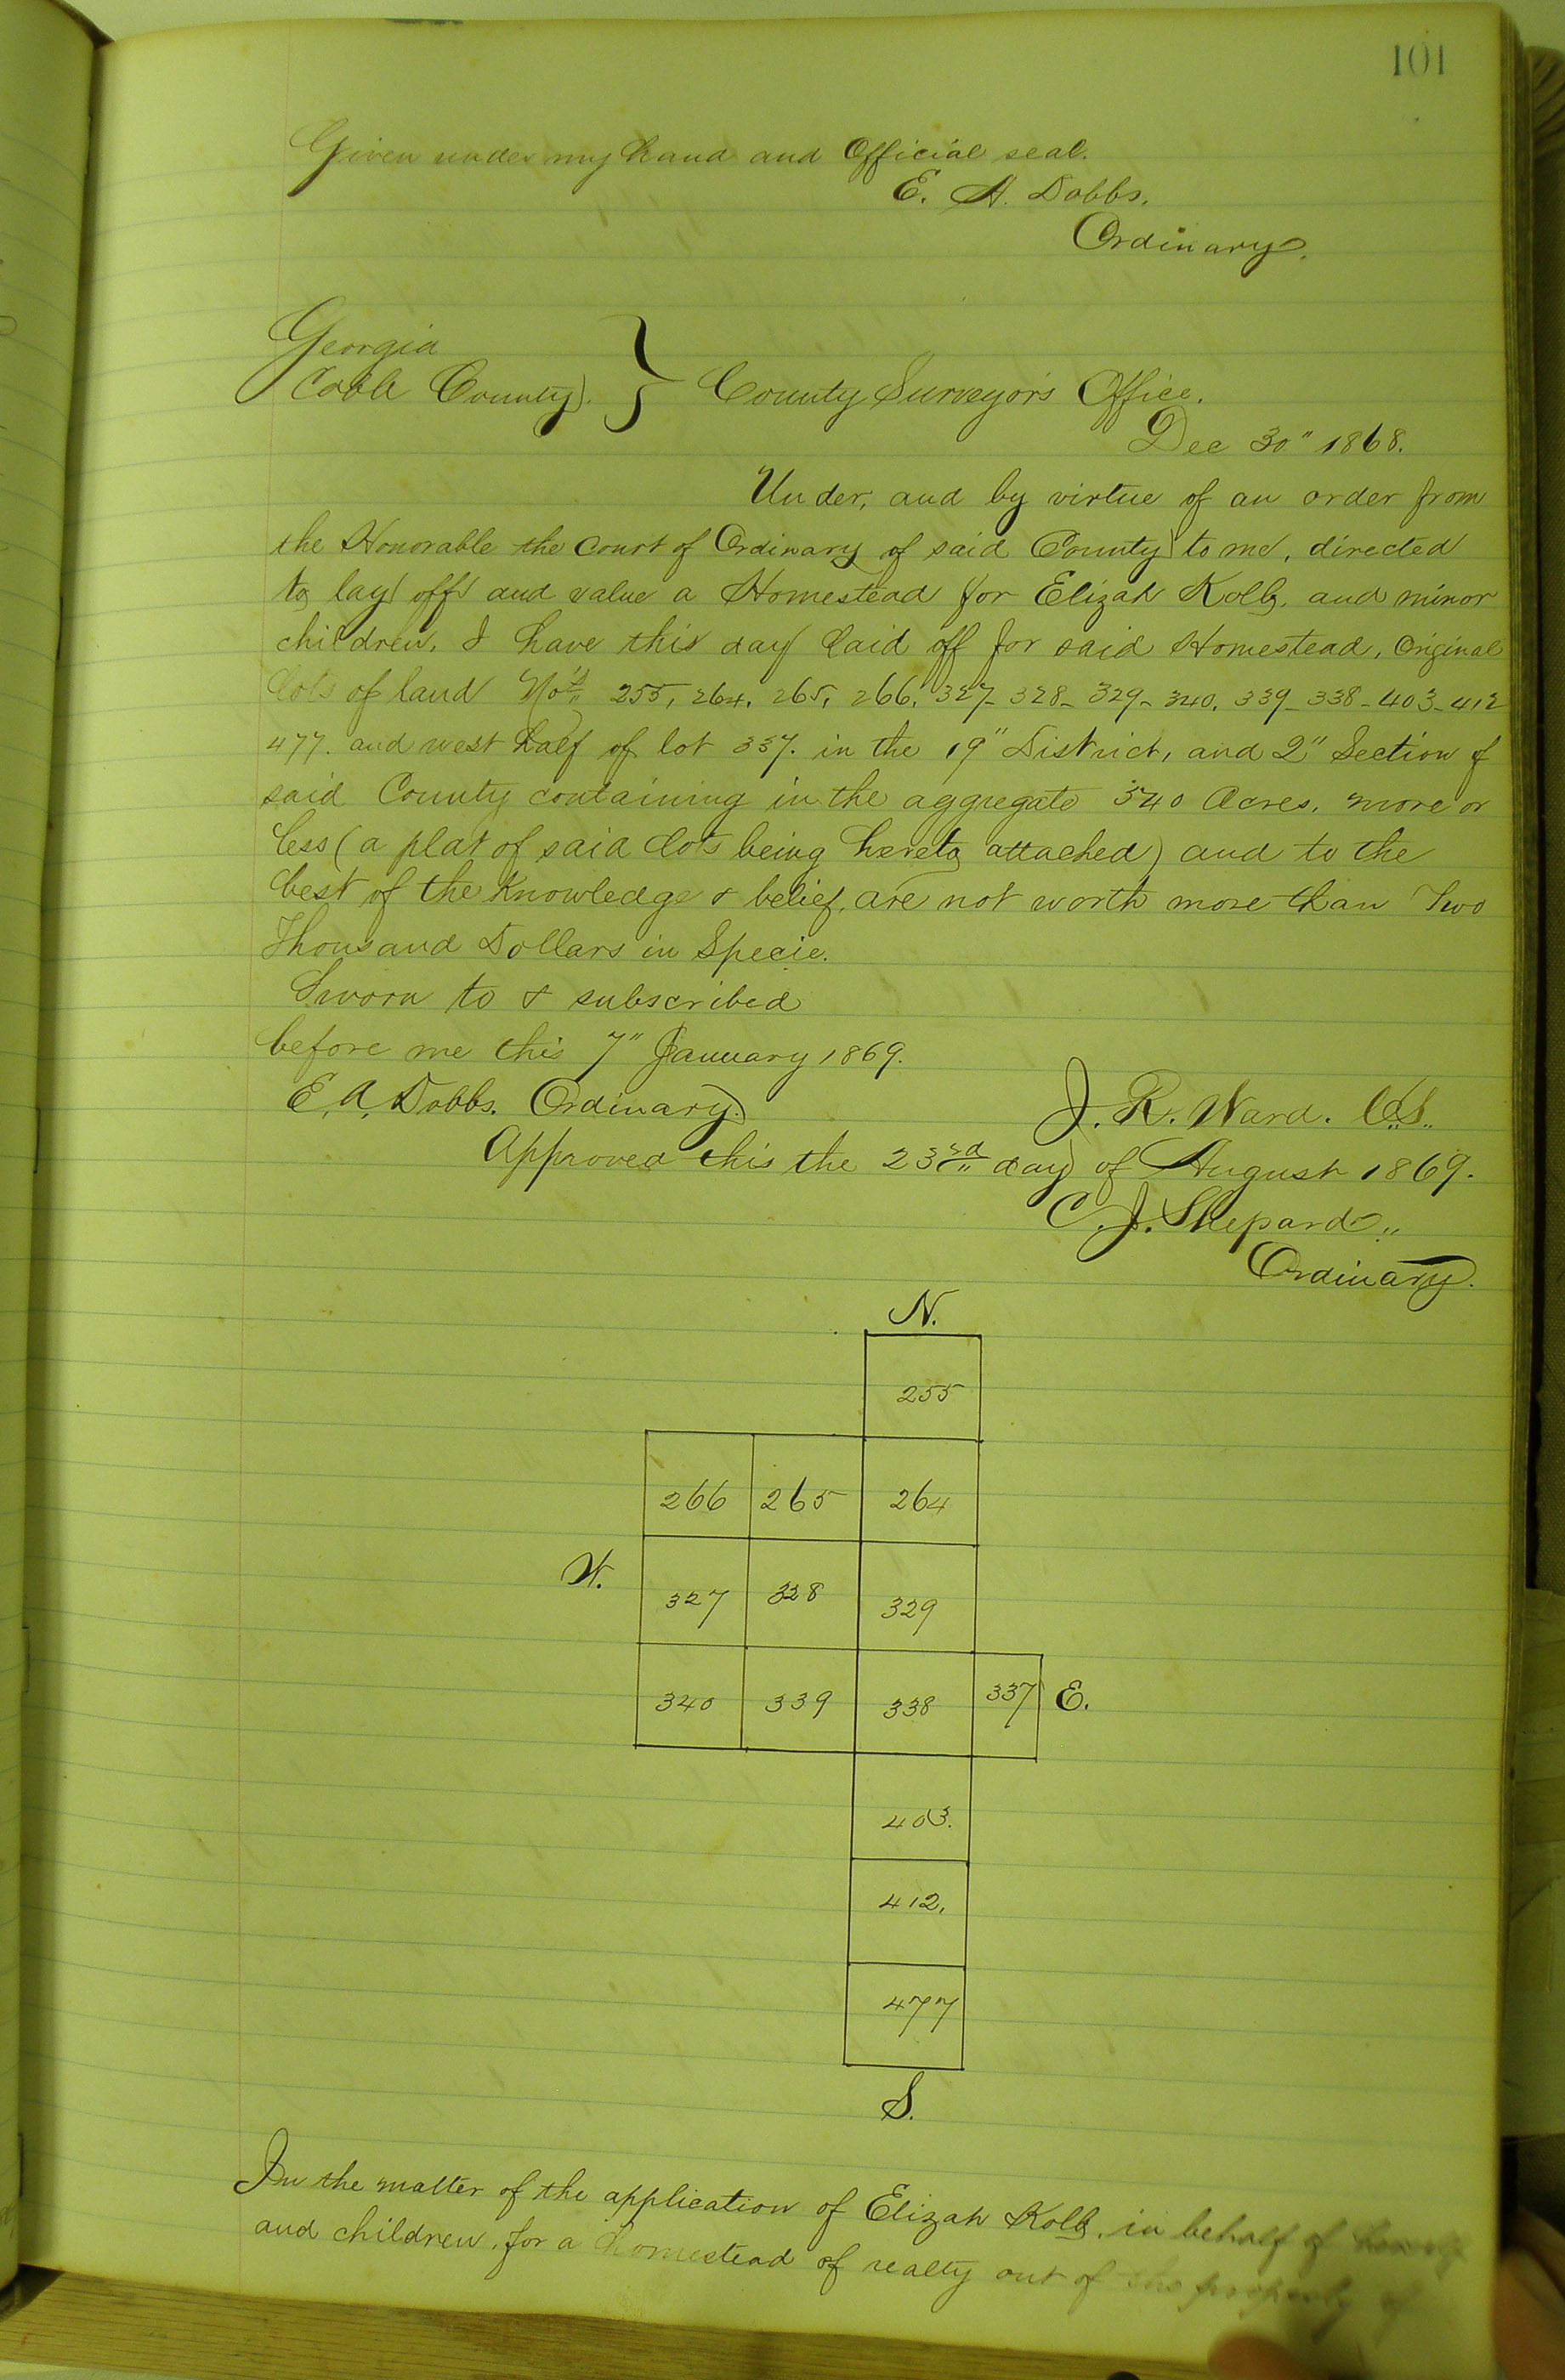 101
Given under my hand and Official seal.
E. A. Dobbs.
Ordinary.
Georgia
Cobb County. } County Surveyor's Office.
Dec 30" 1868.
Under, and by virtue of an order from
the Honorable the Court of Ordinary of said County to me, directed
to lay off and value a Homestead for Elizah Kolb, and minor
children, I have this day laid off for said Homestead, Original
Lots of land No's 255, 264, 265, 266, 327- 328- 329- 340, 339- 338- 403- 412
477. and west half of lot 337. in the 19" District, and 2" Section of
said County containing in the aggregate 540 Acres, more or
less (a plat of said lots being hereto attached) and to the
best of the knowledge & belief, are not worth more than Two
Thousand Dollars in Specie.
Sworn to & subscribed
before me this 7" January 1869.
E. A. Dobbs. Ordinary.
J. R. Ward. C.S.
Approved this the 23rd day of August 1869.
C. J. Shepard.,
Ordinary.
N.
255
266 265 264
W.
327 328 329
340 339 338 337 E.
403.
412,
477
S.
In the matter of the application of Elizah Kolb, in behalf of
and children, for a homestead of realty out of the property of